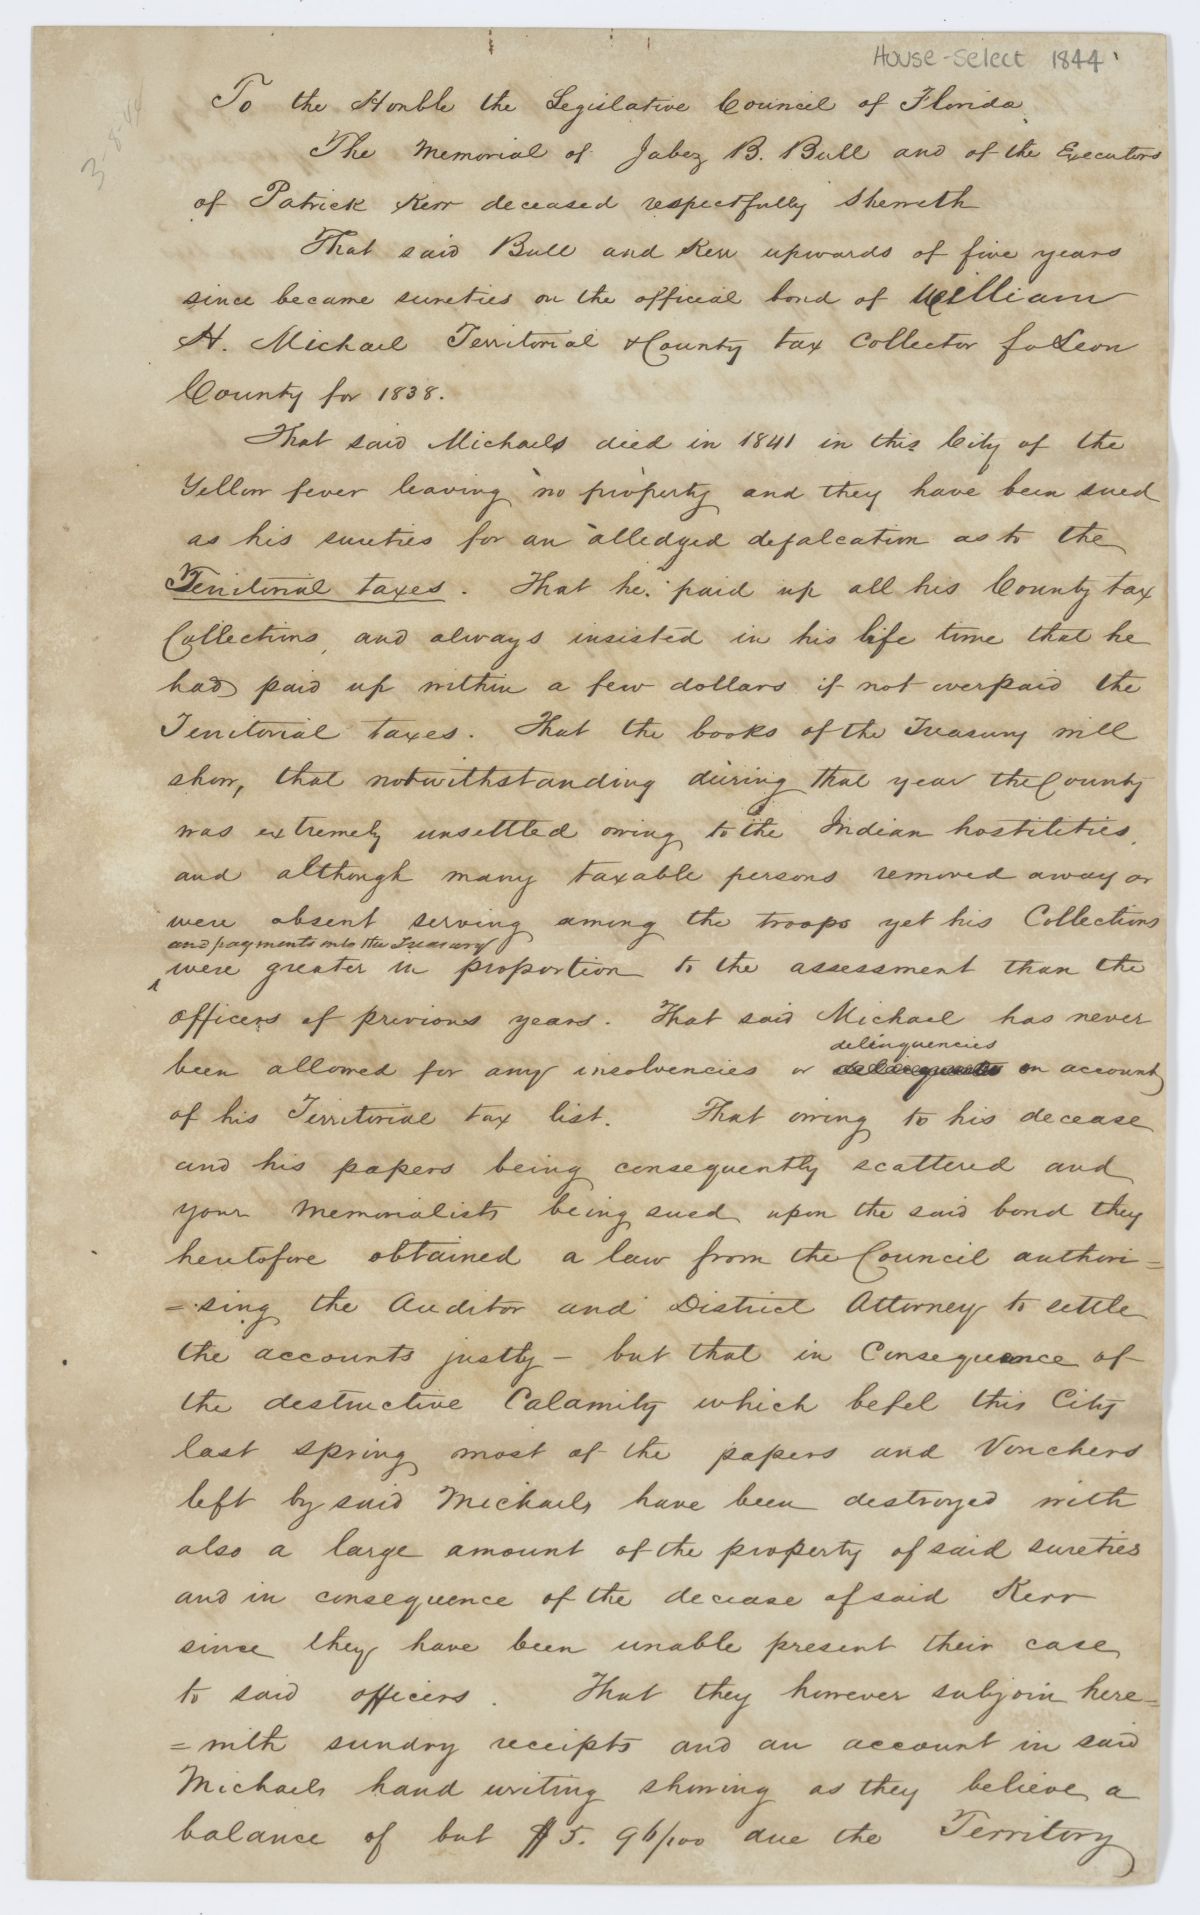 House-Select 1844
3-8-44
To the Honble the Legislative Council of Florida
The Memorial of Jabez B. Bull and of the Executors
of Patrick Kerr deceased respectfully Sheweth
That said Bull and Kerr upwards of five years
since became sureties on the official bond of William
H. Michael Territorial & County tax Collector fo Leon
County for 1838.
That said Michaels died in 1841 in this City of the
Yellow fever leaving no property and they have been sued
as his sureties for an alledged defalcation as to the
Territorial taxes. That he paid up all his County tax
Collections, and always insisted in his life time that he
had paid up within a few dollars if not overpaid the
Territorial taxes. That the books of the Treasury will
show, that notwithstanding during that year the County
was extremely unsettled owing to the Indian hostilities,
and although many taxable persons removed away or
were absent serving among the troops yet his Collections
and payments into the Treasury
were greater in proportion to the assessment than the
officers of previous years. That said Michael has never
delinquencies
been allowed for any insolvencies or on account
of his Territorial tax list. That owing to his decease
and his papers being consequently scattered and
your Memorialists being sued upon the said bond they
heretofore obtained a law from the Council authori=
=sing the Auditor and District Attorney to settle
the accounts justly - but that in Consequence of
the destructive Calamity which befel this City
last spring most of the papers and Vouchers
left by said Michaels have been destroyed with
also a large amount of the property of said sureties
and in consequence of the decease of said Kerr
since they have been unable present their case
to said officers. That they however subjoin here=
=with sundry receipts and an account in said
Michaels hand writing showing as they believe a
balance of but $5. 96/100 due the Territory